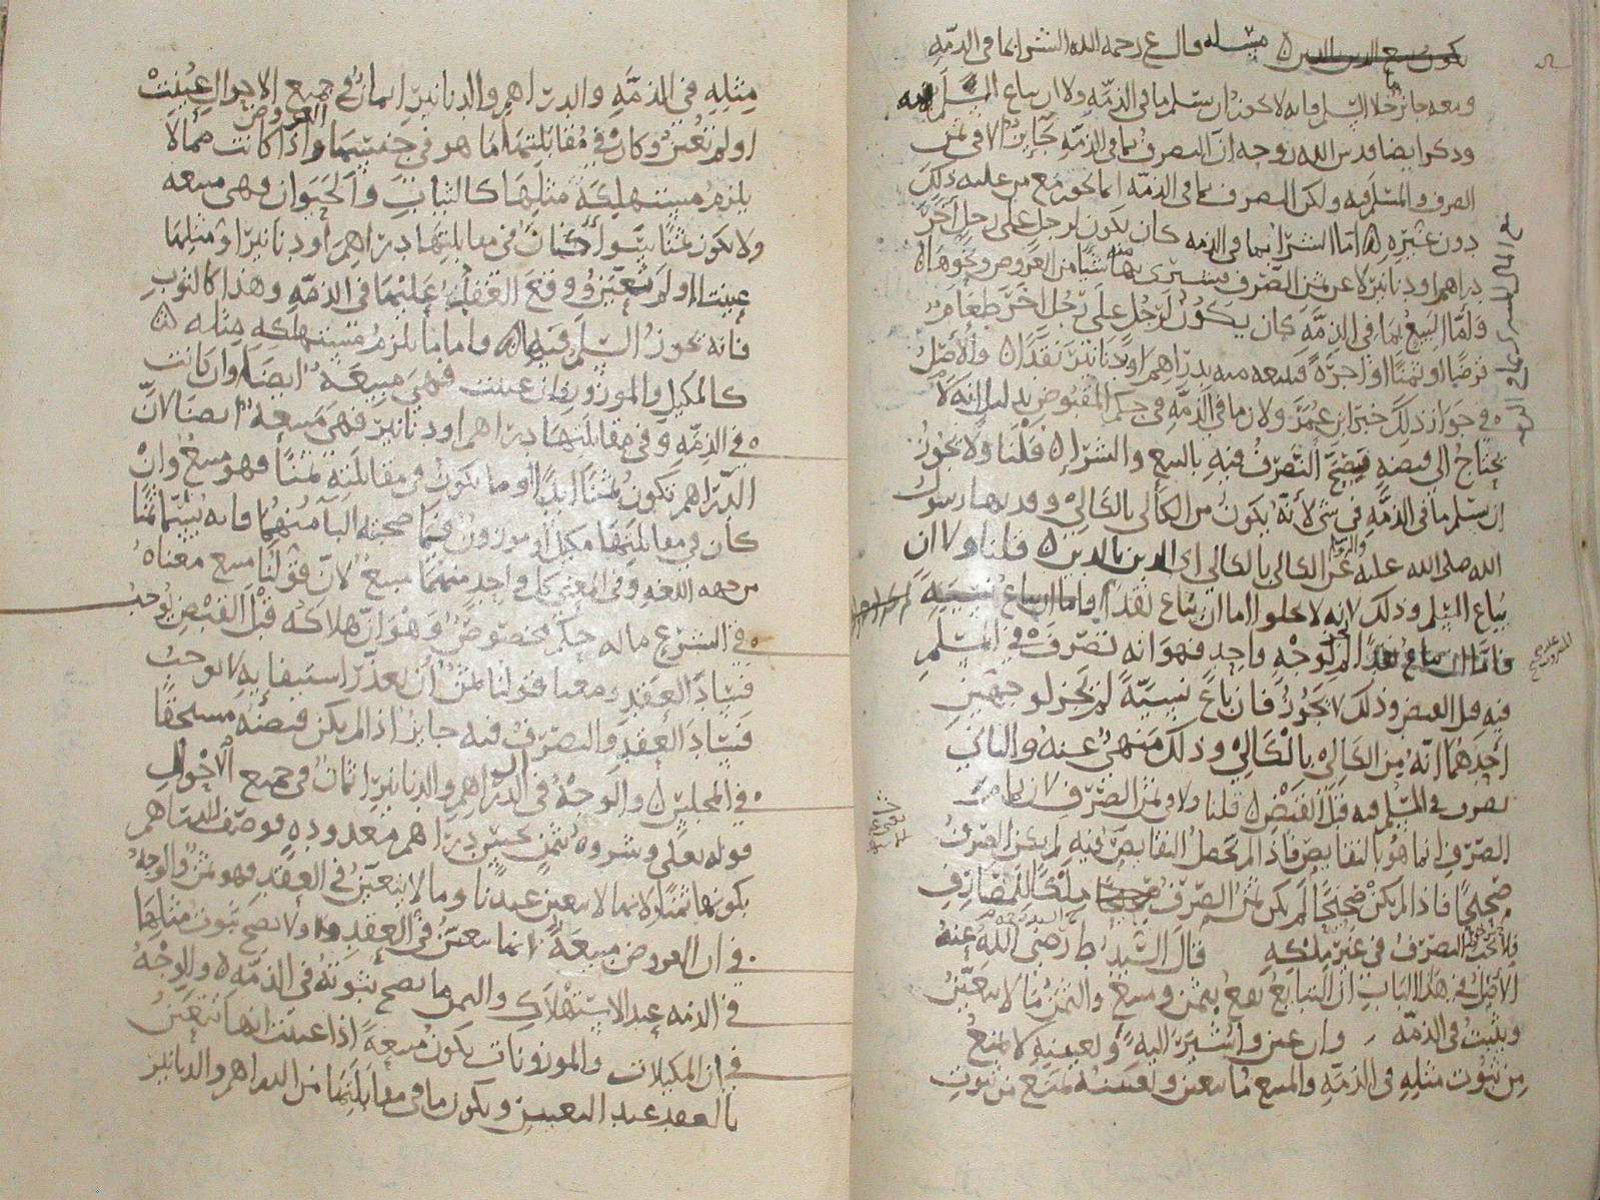 يكون بيع الدين بالدين ۵ مسئله قال ع رحمه الله الشرا بما في الذمّه
وبيعه جائز خلا السّلم فانه لا يجوز ان يسلم ما في الذمّه ولا ان يباع السّلم
وذكر ايضا قدس الله روحه ان التصرف بما في الذمّه جَايز الا في ثمن
الصرف والمسلم فيه ولكن التصرف بما في الذمّه انما يجوز مع من عليه ذلك
دون غيره ۵ امّا الشرا بما في الذمه كان يكون لرجل على رجل آخر
دراهم او دنانير لا عن ثمن الصّرف فيشترى بها منه شيًا من العروض ونحوها ۵
وَامّا البيع بما في الذمّه كان يكون لرَجُلٍ على رَجُل اخر طعَام
قرضًا او ثمنًا او اجرَةً فيبيعه منه بدراهم او دنانير نقدًا ۵ والاصل
في جواز ذلك خبر ابن عُمر ولان ما في الذمّه في حكم المقبوض بدليل انه لا
يحتاج الى قبضه فيصحّ التصرف فيه بالبيع والشرا ۵ قلنا ولا يجوز
ان يسلم ما في الذمّه في شي لأنّه يكون من الكالى بالكالي وقد نها رسول
الله صلى الله عليه واله عن الكالى بالكالي اى الدين بالدين ۵ قلنا ولا ان
يباع السّلم وذلك لانه لا يخلوا اما ان يباع نقدًا واما ان يباع نسيَّةً
فامّا ان بيع نقدًا لم يجز لوجْهٍ واحدٍ فهو انه تصرّف في المسْلم
فيه قبل القبض وذلك لا يجوز فان باعَ نسيَّةً لم يجز لوجهين
احدهما انّه من الكالى بالكالى وذلك منهيٌّ عنهُ والثاني
تصرف في المسْلم فيه قبل القبض ۵ قلنا ولا في ثمن الصّرف لان تمامَ
الصّرف انما هو بالتقابض فاذا لم يحصل التقابض فيه لم يكن الصّرف
صَحيحًا فاذا لم يكن صَحيحًا لم يكن ثمن الصّرف ملكًا للمصَارف
فلا يجوز له التصرّف في غير ملكه قال السيد ط رضى الله عنهُ
الأصْل في هذا البَاب ان التبايع يقع بثمن ومبيع والثمن ما لا يتعيّن
ويثبت في الذمّه وان عين واشير اليه وتعيينه لا يمنع
من ثبوت مثله في الذمّه والمبيع ما يتعين وتعيينه يمنع من ثبوت
مثله في الذمَّةِ والدراهم والدنانير اثمانٌ في جميع الاحوال عينت
او لم تعين وكان في مقابلتهما ما هو في جنسيتهما واذا كانت العروض مما لا
يلزم مستهلِكَهُ مثلُها كالثياب والحيوان فهي مبيعه
ولا يكون ثمنًا سَوا كان في مقابلتها دراهم او دنانير او مثلها
عينت او لم تتعيّن ووقع العقد عليها في الذمّه وهذا كالثوب
فانه يجوز السّلم فيه ۵ واما ما يلزم مستهلكه مثله
كالمكيل والموزون فان عينت فهي مبيعة ايضًا وان كانت
في الذمّه وفي مقابلتها دراهم او دنانير فهي مبيعه ايضا لانّ
الدّراهم تكون ثمنًا ابدًا وما يكون في مقابلته ثمنًا فهو مبيع وان
كان في مقابلتها مكيل او موزون فما صحبته البآ منهما فانه يسمّا ثمنًا
من جهه اللغه وفي المعنى كل واحدٍ منهما مبيع لانّ قولنا مبيع معناهُ
في الشرع ما له حكم مخصوصٌ وهو انّ هلاكه قبْل القبْض يوجبُ
فسَادَ العقدِ ومعنا قولنا ثمن ان تعذّر استيفايه لا يوجب
فسَادَ العقدِ والتصرّف فيه جايز اذا لم يكن قبضه مستحقًا
في المجلس ۵ والوجْهُ في ان الدّراهم والدنانير اثمانٌ في جميع الأحْوالِ
قوله تعالى وشروهُ بثمن بخسٍ دراهم معدودهٍ فوصف الدراهم
بكونها ثمنًا ولانها لا تتعين عندنا وما لا يتعيّن في العقد فهو ثمن والوجهُ
في ان العروض مبيعَةٌ انها تتعيّن في العقد ولا يصح ثبوت مثلها
في الذمه عند الاستهلاك والثمن ما يصح ثبوته في الذمّه ۵ والوجْهُ
في ان المكيلات والموزونات يكون مبيعةً اذا عينت انها تتعيّن
بالعقد عند التعيين ويكون ما في مقابلتها من الدراهم والدنانير